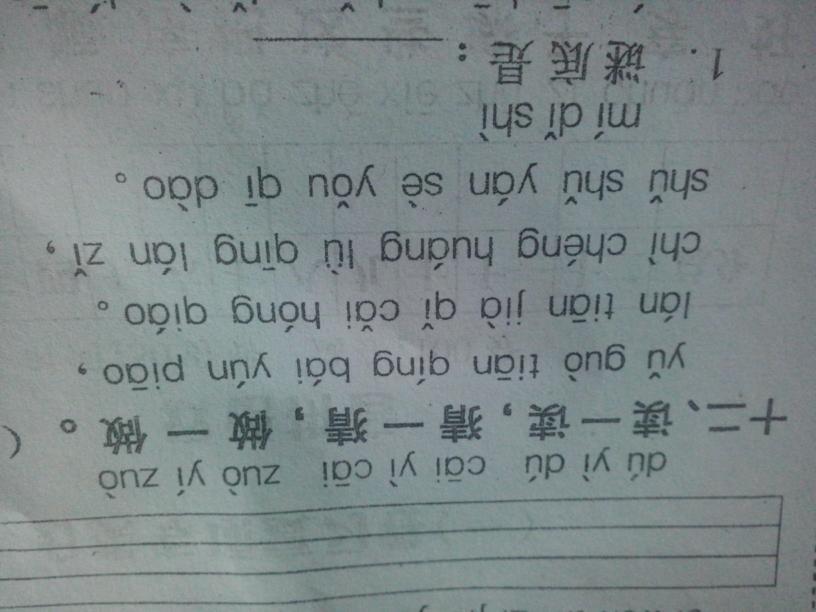 dú yì dú cāi yì cāi zuò yí zuò
十二、读一读，猜一猜，做一做。（
yǔ guò tiān qíng bái yún piāo，
lán tiān jià qǐ cǎi hóng qiáo。
chì chéng huáng lǜ qīng lán zǐ，
shǔ shǔ yán sè yǒu qī dào。
mí dǐ shì
1. 谜底是：______